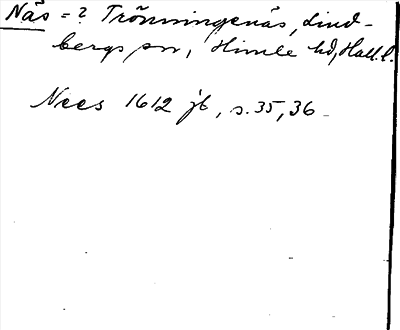 Näs = ? Tröninngenäs, Lind-
bergs sn, Himle hd, Hall. l.
Nees 1612 jb, s. 35, 36